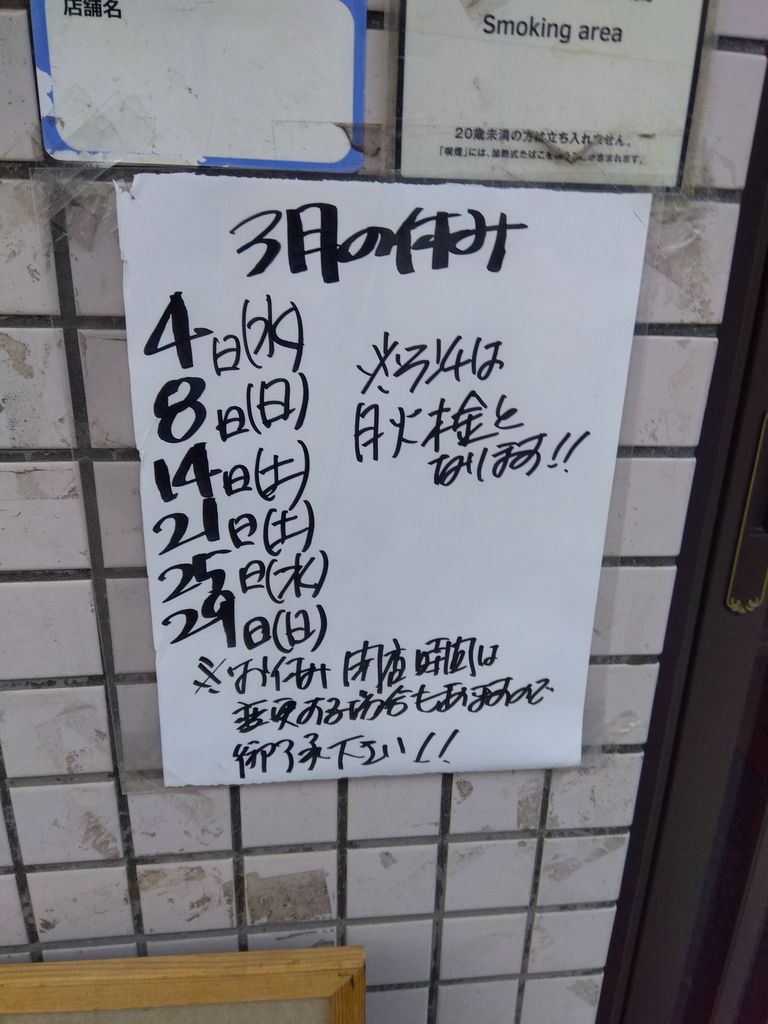 店舗名
Smoking area
20歳未満の方は立ち入れません。
「喫煙」には、加熱式たばこを
が含まれます。
3月の休み
4日(水)
8日(日)
14日(土)
21日(土)
25日(水)
29日(日)
※ランチは
月火木金と
なります!!
※お休み 閉店時間は
変更する場合もありますので
御了承下さい!!